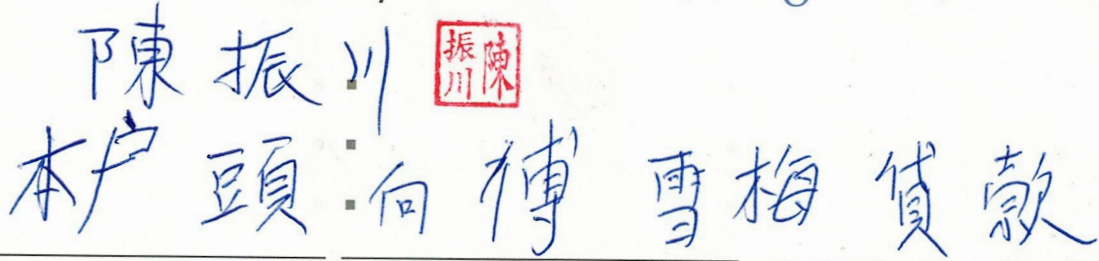 陳振川 陳振川
本戶頭向傅雪梅貸款